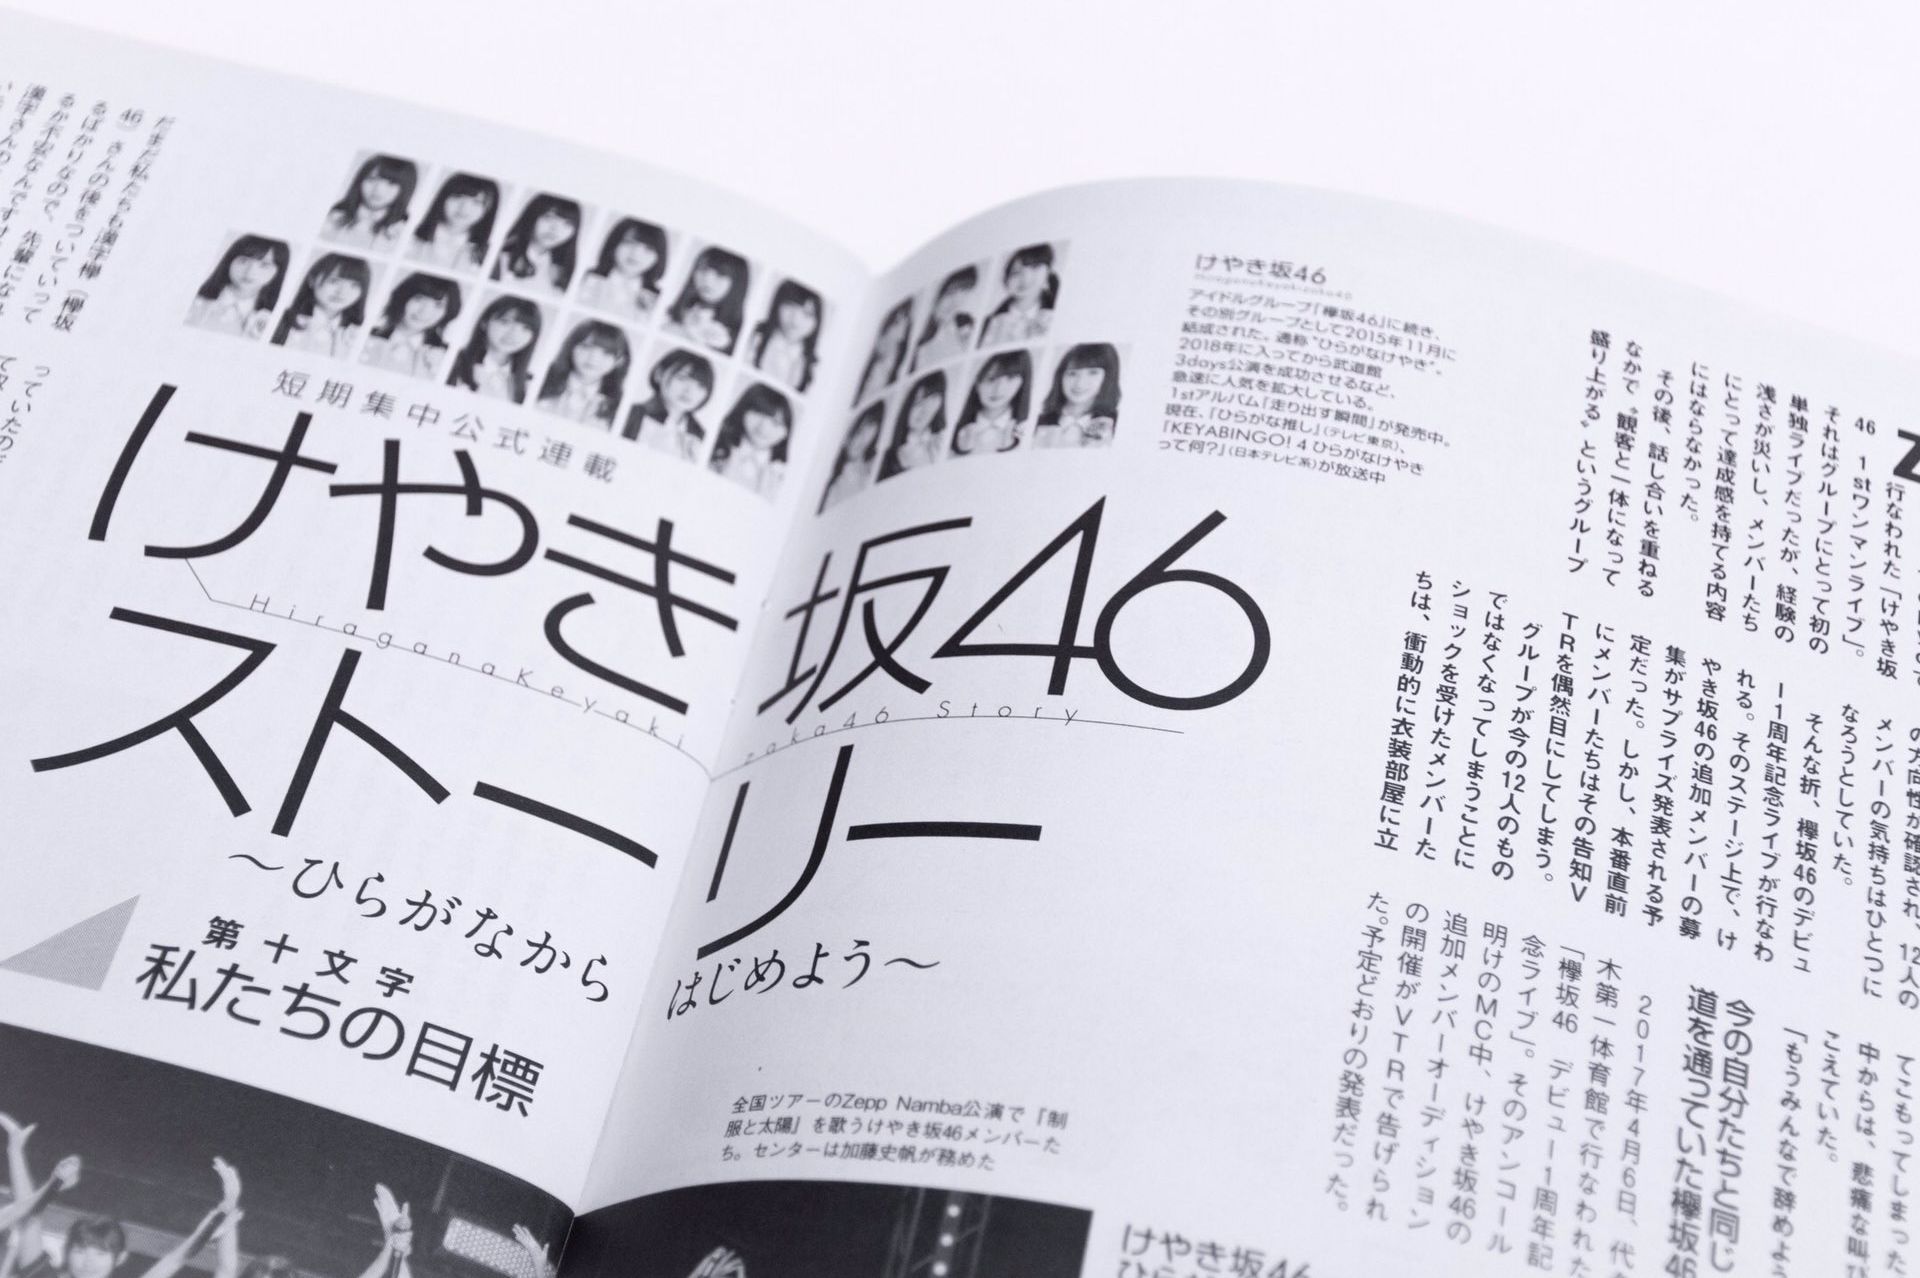 だまだ私たちも漢字欅（欅坂
46）さんの後をついていって
るばかりなので、先輩になれ
るか不安なんですけ
漢字さんの
っていたので
短期集中公式連載
けやき坂46
ストーリー
HiraganaKeyakizaka46 Story
〜ひらがなからはじめよう〜
第十文字
私たちの目標
けやき坂46
アイドルグループ「欅坂46」に続き、
その別グループとして2015年11月に
結成された。通称“ひらがなけやき”。
2018年に入ってから武道館
3days公演を成功させるなど、
急速に人気を拡大している。
1stアルバム「走り出す瞬間」が発売中。
現在、「ひらがな推し」（テレビ東京）、
「KEYABINGO! 4 ひらがなけやき
って何?」（日本テレビ系）が放送中
全国ツアーのZepp Namba公演で『制
服と太陽』を歌うけやき坂46メンバーた
ち。センターは加藤史帆が務めた
行なわれた「けやき坂
46 1stワンマンライブ」。
それはグループにとって初の
単独ライブだったが、経験の
浅さが災いし、メンバーたち
にとって達成感を持てる内容
にはならなかった。
その後、話し合いを重ねる
なかで〝観客と一体になって
盛り上がる〟というグループ
の方向性が確認され、12人の
メンバーの気持ちはひとつに
なろうとしていた。
そんな折、欅坂46のデビュ
ー1周年記念ライブが行なわ
れる。そのステージ上で、け
やき坂46の追加メンバーの募
集がサプライズ発表される予
定だった。しかし、本番直前
にメンバーたちはその告知V
TRを偶然目にしてしまう。
グループが今の12人のもの
ではなくなってしまうことに
ショックを受けたメンバーた
ちは、衝動的に衣装部屋に立
てこもってしまった
中からは、悲痛な叫び
こえていた。
「もうみんなで辞めよう
今の自分たちと同じ
道を通っていた欅坂46
2017年4月6日、代々
木第一体育館で行なわれた
「欅坂46 デビュー1周年記
念ライブ」。そのアンコール
明けのMC中、けやき坂46の
追加メンバーオーディション
の開催がVTRで告げられ
た。予定どおりの発表だった。
けやき坂46